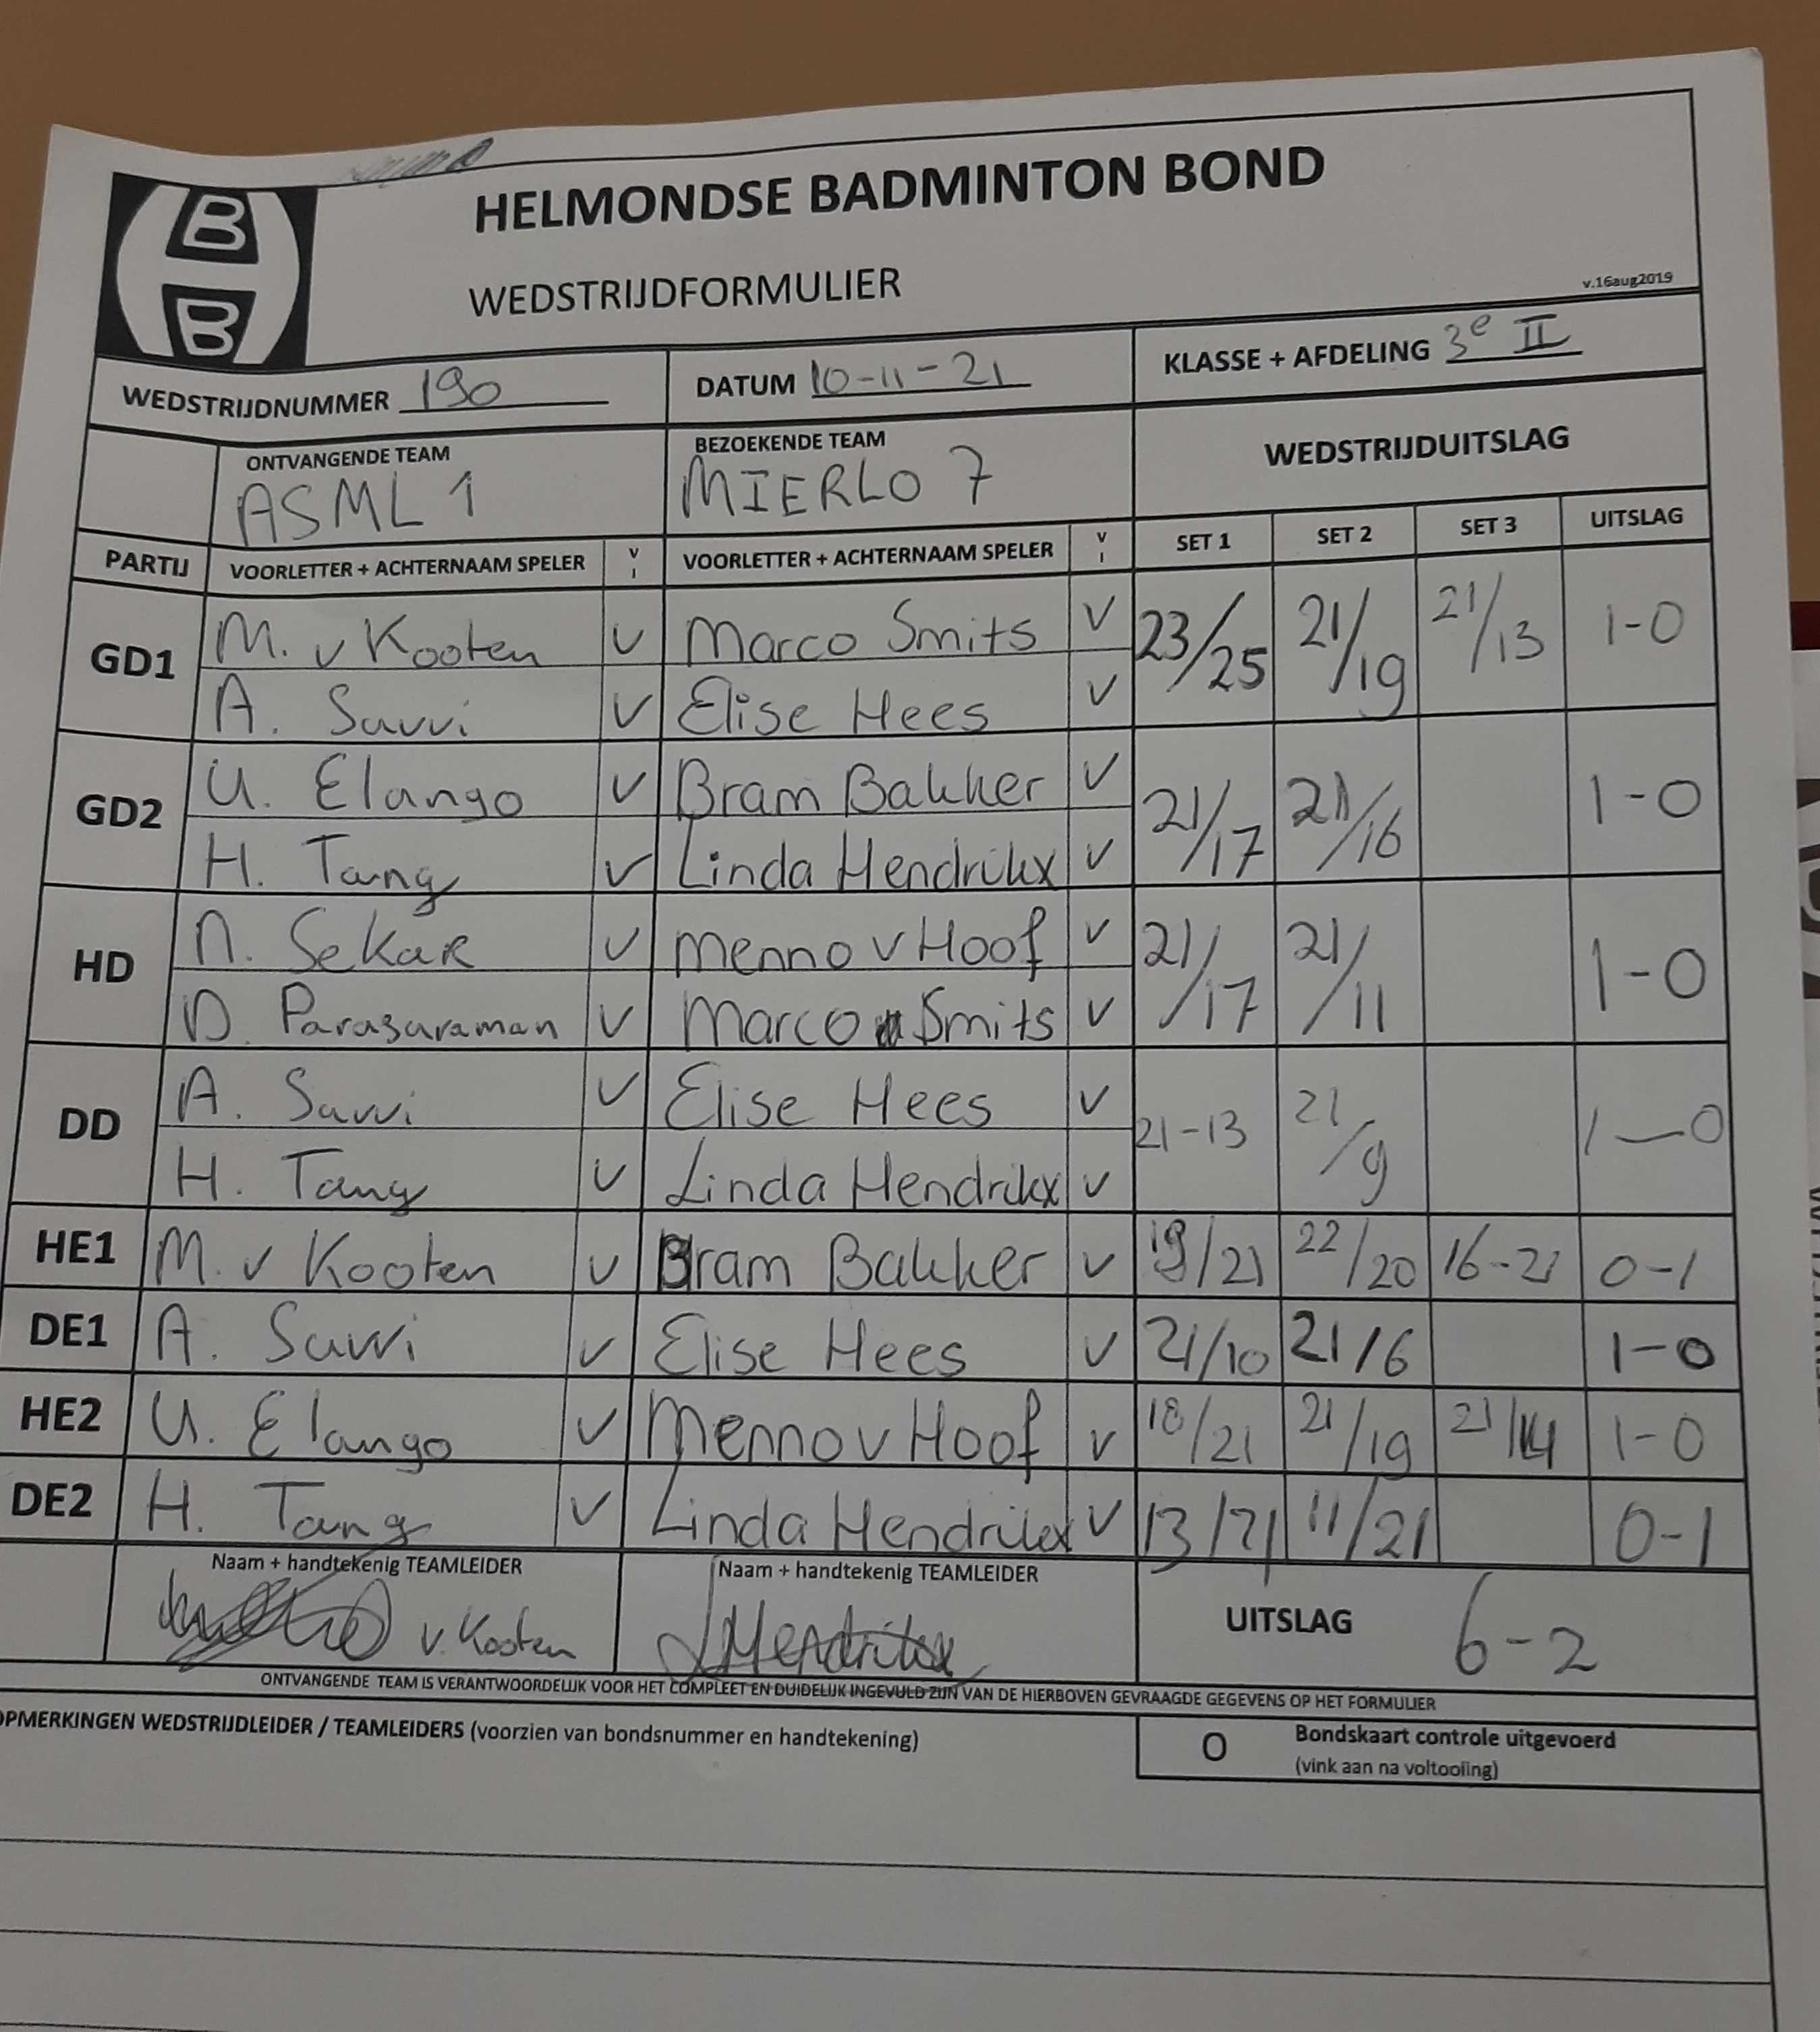 B
B
HELMONDSE BADMINTON BOND
WEDSTRIJDFORMULIER
v.16aug2019
WEDSTRIJDNUMMER 190 DATUM 10-11-21 KLASSE + AFDELING 3e II
ONTVANGENDE TEAM BEZOEKENDE TEAM WEDSTRIJDUITSLAG
ASML 1 MIERLO 7
PARTIJ VOORLETTER + ACHTERNAAM SPELER V I VOORLETTER + ACHTERNAAM SPELER V I SET 1 SET 2 SET 3 UITSLAG
GD1 M. v Kooten V Marco Smits V 23/25 21/19 21/13 1-0
A. Savvi V Elise Hees V
GD2 U. Elango V Bram Bakker V 21/17 21/16 1-0
H. Tang V Linda Hendrikx V
HD N. Sekar V Menno v Hoof V 21/17 21/11 1-0
D. Parasaraman V Marco Smits V
DD A. Savvi V Elise Hees V 21-13 21/9 1-0
H. Tang V Linda Hendrikx V
HE1 M. v Kooten V Bram Bakker V 19/21 22/20 16-21 0-1
DE1 A. Savvi V Elise Hees V 21/10 21/6 1-0
HE2 U. Elango V Menno v Hoof V 18/21 21/19 21/14 1-0
DE2 H. Tang V Linda Hendrikx V 13/21 11/21 0-1
Naam + handtekenig TEAMLEIDER Naam + handtekenig TEAMLEIDER
v. Kooten LHendrikx UITSLAG 6-2
ONTVANGENDE TEAM IS VERANTWOORDELIJK VOOR HET COMPLEET EN DUIDELIJK INGEVULD ZIJN VAN DE HIERBOVEN GEVRAAGDE GEGEVENS OP HET FORMULIER
OPMERKINGEN WEDSTRIJDLEIDER / TEAMLEIDERS (voorzien van bondsnummer en handtekening)
O Bondskaart controle uitgevoerd
(vink aan na voltooiing)